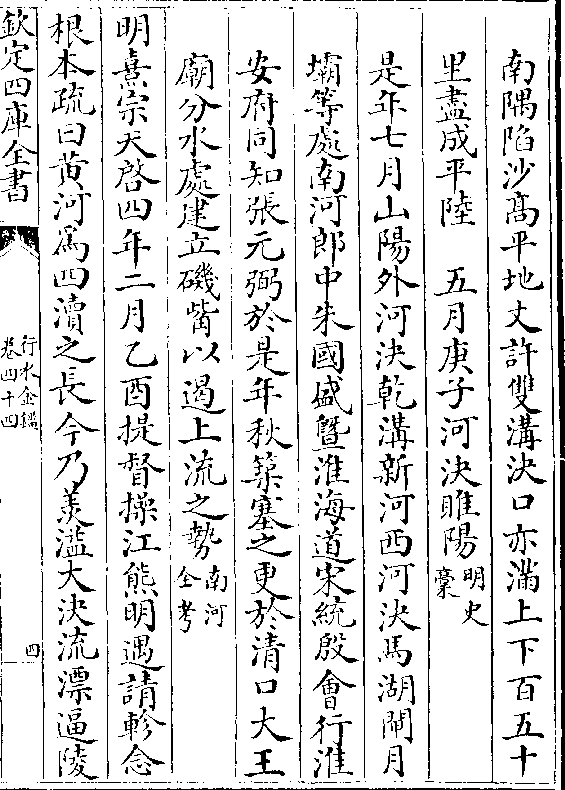 南隅陷沙髙平地丈許雙溝決口亦滿上下百五十
里盡成平陸　五月庚子河決睢陽明史藁
是年七月山陽外河決乾溝新河西河決馬湖閘月
壩等處南河郎中朱國盛曁淮海道宋統殷會行淮
安府同知張元弼於是年秋築塞之更於清口大王
廟分水處建立磯觜以遏上流之勢南河全考
明熹宗天啓四年二月乙酉提督操江熊明遇請軫念
根本疏曰黄河為四瀆之長今乃羨溢大決流漂逼陵
欽定四庫全書
行水金鑑
卷四十四
四